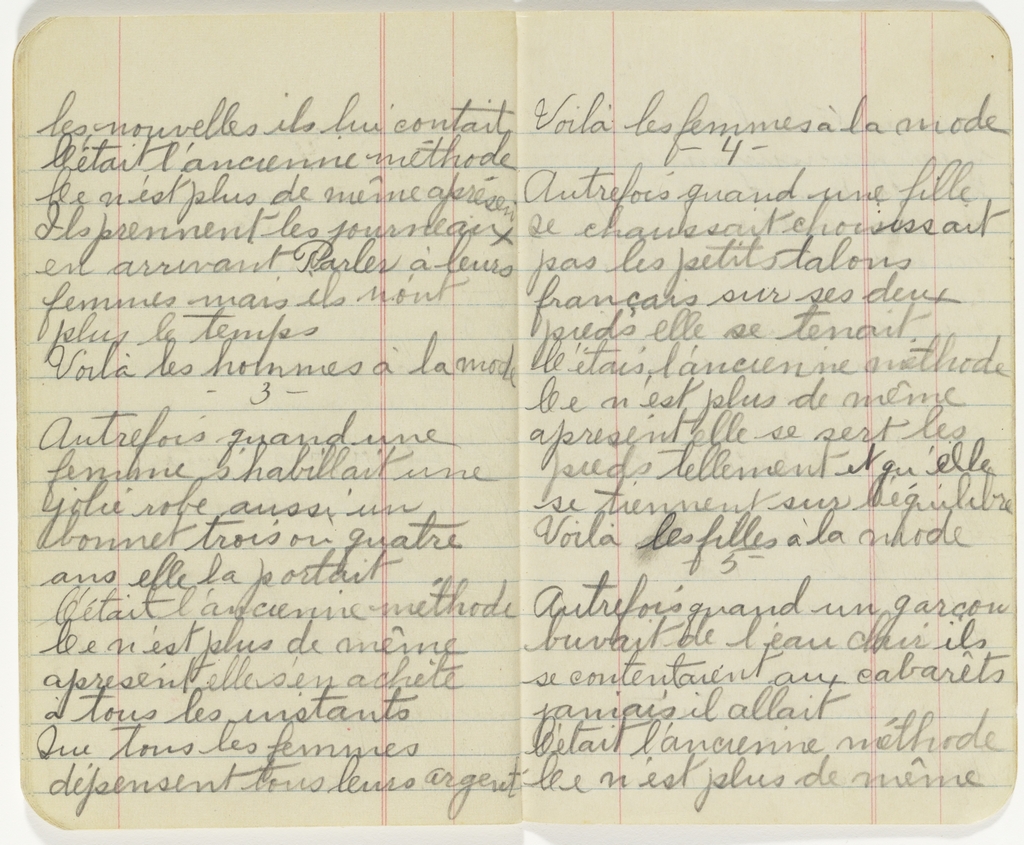 les nouvelles ils lui contait
C'était l'ancienne méthode
Ce n'est plus de même aprésen
Ils prennent les journeaux
en arrivant Parler à leurs
femmes mais ils n'ont
plus le temps
Voilà les hommes à la mode
- 3 -
Autrefois quand une
femme s'habillait une
jolie robe aussi un
bonnet trois ou quatre
ans elle la portait
C'était l'ancienne méthode
Ce n'est plus de même
apresént elle s'en achète
à tous les instants
Que tous les femmes
dépensent tous leurs argent
Voilà les femmes à la mode
- 4 -
Autrefois quand une fille
se chaussait choisissait
pas les petits talons
français sur ses deux
pieds elle se tenait
C'étais l'ancienne méthode
Ce n'est plus de même
apresent elle se sert les
pieds tellement et qu'elle
se tiennent sur l'équilibre
Voilà les filles à la mode
- 5 -
Autrefois quand un garçon
buvait de l'eau clair ils
se contentaient aux cabarêts
jamais il allait
C'était l'ancienne méthode
Ce n'est plus de même